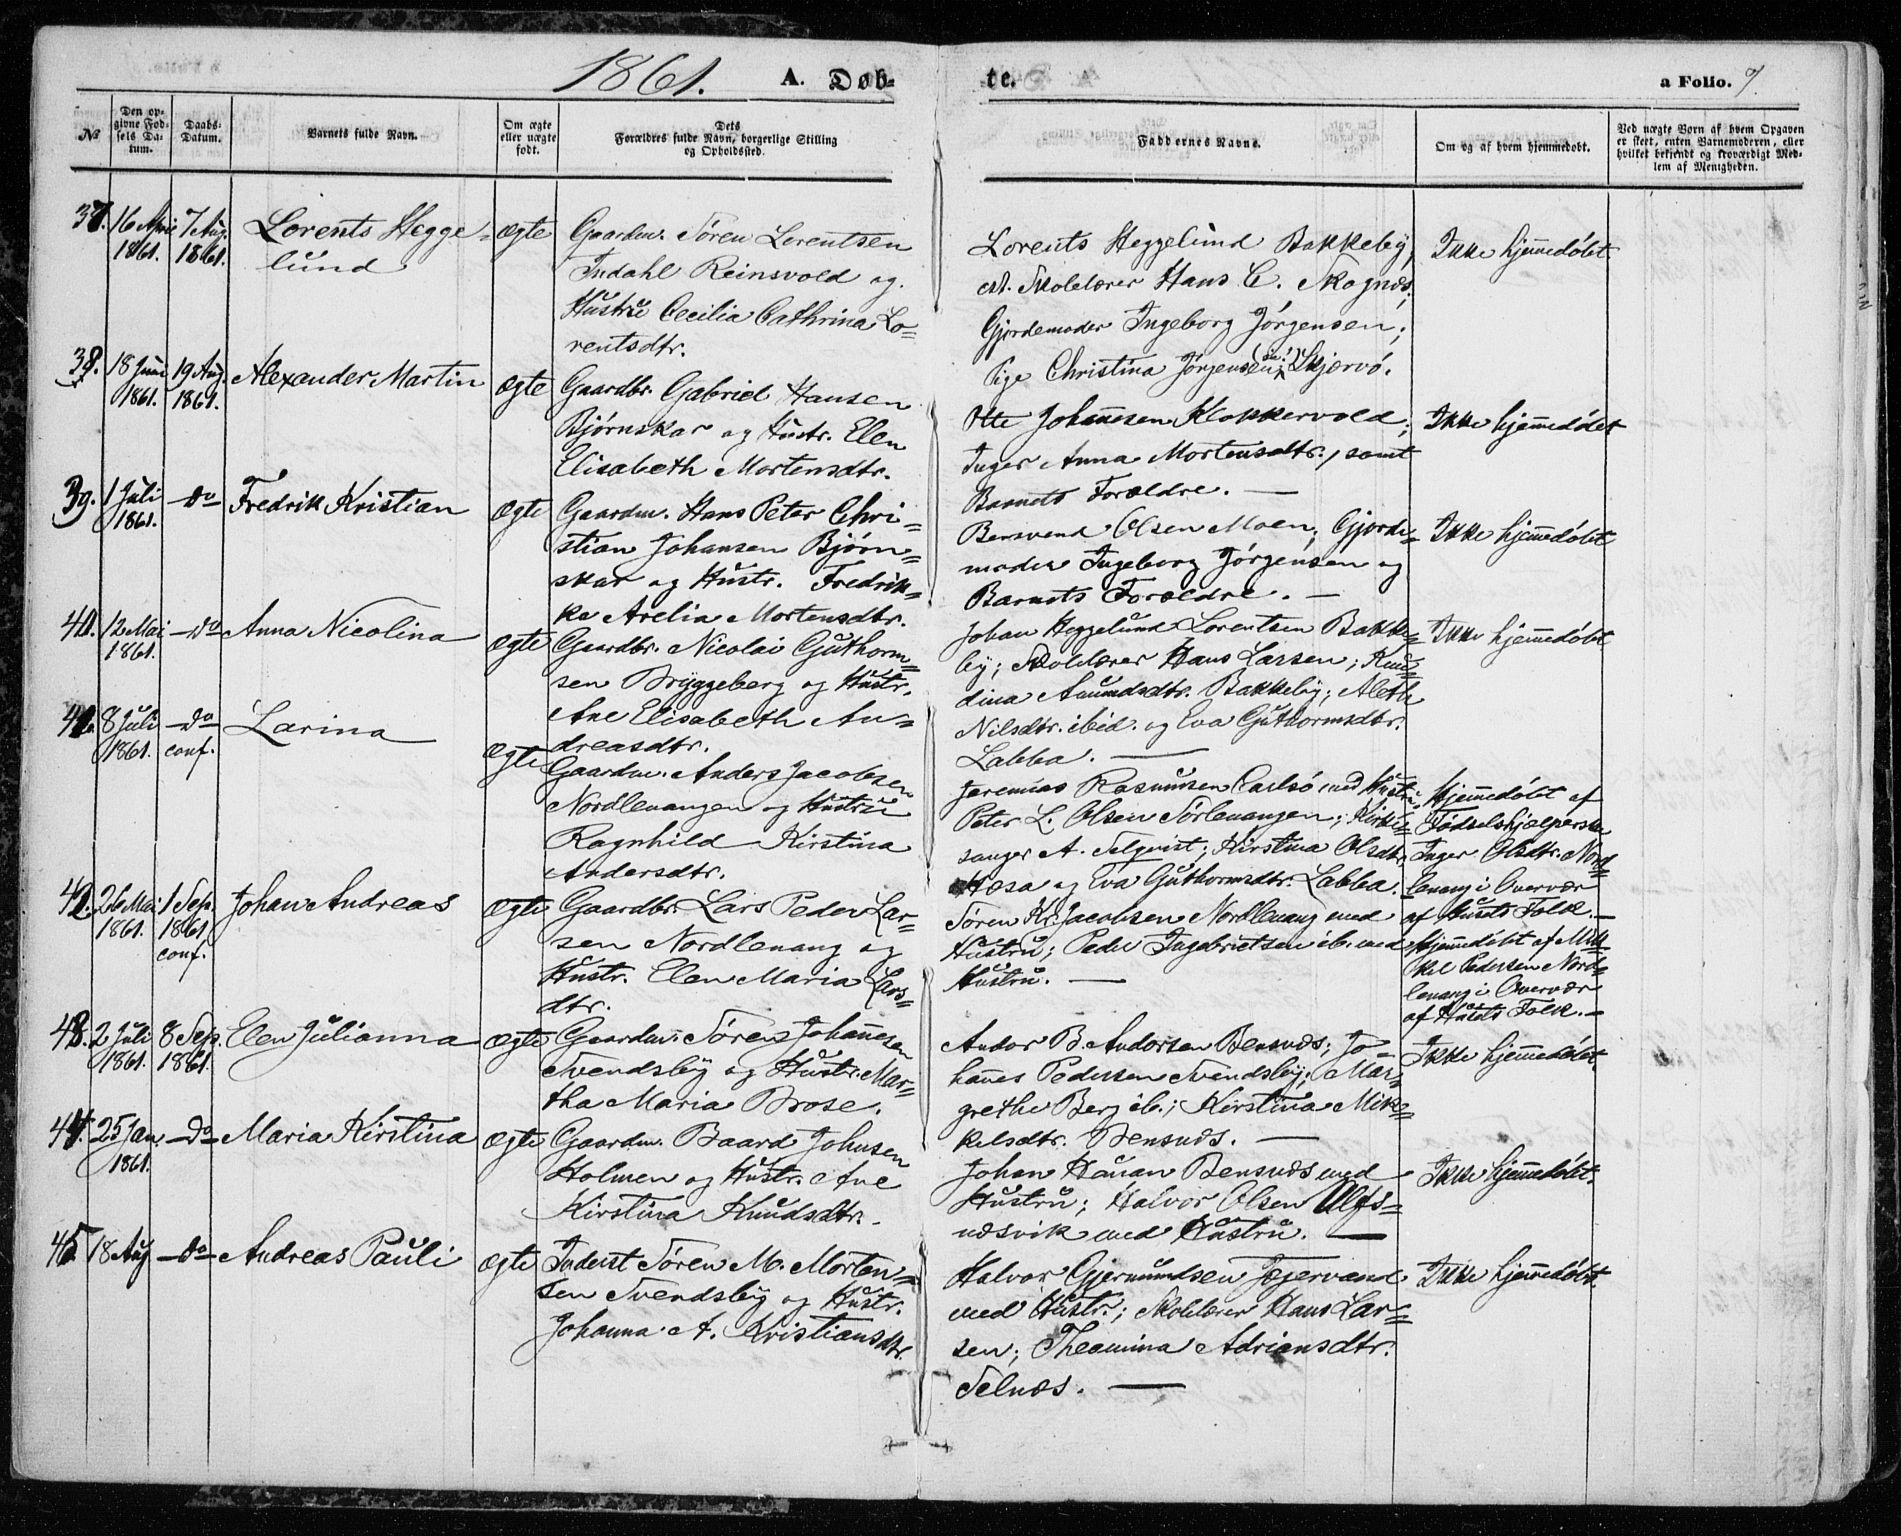 1861. A. Døb-
te. a Folio. 7.
No
Den op-
givne Fød-
sels Da-
tum.
Daabs-
Datum.
Barnets fulde Navn.
Om ægte
eller uægte
født.
Dets
Forældres fulde Navn, borgerlige Stilling
og Opholdssted.
Faddernes Navne.
Om og af hvem hjemmedøbt.
Ved uægte Børn af hvem Opgaven
er skeet, enten Barnemoderen, eller
hvilket bekjendt og troværdigt Med-
lem af Menigheden.
37. 16 April 1861. 7 Aug. 1861. Lorents Hegge-
lund
ægte
Gaardm. Søren Lorentsen
Indahl Reinsvold og
Hustru Cecilia Cathrina Lo-
rentsdtr.
Lorents Heggelund Bakkeby,
Skolelærer Hans C. Skognæs;
Gjordemoder Ingeborg Jørgensen;
Pige Christina Jørgensen, Skjervö.
Ikke hjemmedøbt
38. 18 Juni 1861. 19 Aug. 1861. Alexander Martin
ægte
Gaardbr. Gabriel Hansen
Bjørnskar og Hustr. Elen
Elisabeth Mortensdtr.
Otte Johannesen Klokkervold;
Inger Anna Mortensdtr., samt
Barnets Forældre. —
Ikke hjemmedøbt
39. 1 Juli 1861. —do— Fredrik Kristian
ægte
Gaardm. Hans Peter Chri-
stian Johansen Bjørn-
skar og Hustr. Fredrik-
ke Arelia Mortensdtr.
Bersvend Olsen Moen; Gjorde-
moder Ingeborg Jørgensen og
Barnets Forældre. —
Ikke hjemmedøbt
40. 12 Mai 1861. —do— Anna Nicolina
ægte
Gaardbr. Nicolai Guthorm-
sen Bryggeberg og Hustr.
Ane Elisabeth An-
dreasdtr.
Johan Heggelund Lorentsen Bakke-
by; Skolelærer Hans Larsen; Knu-
dina Amundsdtr. Bakkeby; Aleth
Nilsdtr. ibid. og Eva Guthormsdtr.
Labba. —
Ikke hjemmedøbt
41. 8 Juli 1861. —do— conf. Larina
ægte
Gaardm. Anders Jacobsen
Nordlenangen og Hustru
Ragnhild Kirstina
Andersdtr.
Jeremias Rasmusen Carlsö med Hustru;
Peter L. Olsen Sørlenangen; Kirke-
sanger A. Selqvist; Kirstina Olsdtr.
Hæsa og Eva Guthormsdtr. Labba.
Hjemmedøbt af
Fødselshjælperske
Inger Olsdtr. Nord-
lenang i Overvær
af Husets Folk. —
42. 26 Mai 1861. 1 Sep. 1861 conf. Johan Andreas
ægte
Gaardbr. Lars Peder Lar-
sen Nordlenang og
Hustr. Elen Maria Lars-
dtr.
Søren Kr. Jacobsen Nordlenang med
Hustru; Peder Ingebrigtsen ib. med
Hustru. —
Hjemmedøbt af Mik-
kel Pedersen Nord-
lenang i Overvær
af Husets Folk. —
43. 2 Juli 1861. 8 Sep. 1861. Elen Julianna
ægte
Gaardm. Søren Johannesen
Svendsby og Hustr. Mar-
tha Maria Brose.
Andor B. Andorsen Bensnæs; Jo-
hannes Pedersen Svendsby; Mar-
grethe Berg ib.; Kirstina Mik-
kelsdtr. Bensnæs. —
Ikke hjemmedøbt
44. 25 Jan. 1861. —do— Maria Kirstina
ægte
Gaardm. Baard Johnsen
Holmen og Hustr. Ane
Kirstina Knudsdtr.
Johan Hanan Bensnæs med
Hustru; Halvor Olsen Ulfs-
næsvik med Hustru. —
Ikke hjemmedøbt.
45 18 Aug —do— Andreas Pauli
ægte
Inderst Søren M. Morten-
sen Svendsby og Hustr.
Johanna A. Kristiansdtr.
Halvor Gjermundsen Jægervand
med Hustr.; Skolelærer Hans Lar-
sen; Theamina Adriansdtr.
Selnæs. —
Ikke hjemmedøbt